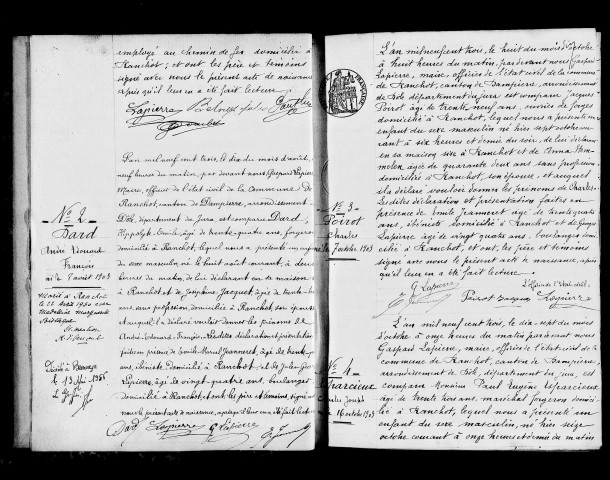 employé au chemin de fer domicilié à
Ranchot; et ont les père et témoins
signé avec nous le présent acte de naissance
après qu'il leur en a été fait lecture
Lapierre
No 2
Dard
André Edouard
François
né le 8 août 1903
Marié à Ranchot
Madeleine Marguerite
Décédé à
L'an mil neuf cent trois, le dix du mois d'août, à
neuf heures du matin, par devant nous Gaspard Lapierre
Maire, officier de l'état civil de la Commune de
Ranchot, canton de Dampierre, arrondissement de
Dôle, département du Jura, est comparu Dard
Hippolyte Emile, âgé de trente-quatre ans, forgeron
domicilié à Ranchot, lequel nous a présenté un enfant
du sexe masculin né le huit août courant, à deux
heures du matin, de lui déclarant en sa maison
à Ranchot et de Joséphine Jacquet, âgée de trente-
ans, sans profession domiciliée à Ranchot, son épouse
et auquel il a déclaré vouloir donner les prénoms de
André-Edouard-François. Lesdites déclaration et présentation
faites en présence de Emile Marcel Jeanneret, âgé de trente-
ans, ébéniste domicilié à Ranchot et de Jules Georges
Lapierre, âgé de vingt-quatre ans, boulanger
domicilié à Ranchot, et ont les père et témoins, signé avec
nous le présent acte de naissance, après qu'il leur en a été fait lecture
Dard Lapierre G Lapierre
No 3
Poirot
Charles
né le 7 octobre 1903
L'an mil neuf cent trois, le huit du mois d'octobre
à huit heures du matin, par devant nous Gaspard
Lapierre, maire, officier de l'état civil de la commune
de Ranchot, canton de Dampierre, arrondissement
de Dôle département du jura est comparu Jacques
Poirot âgé de trente neuf ans, ouvrier de forges
domicilié à Ranchot, lequel nous a présenté un
enfant du sexe masculin né hier sept octobre courant
à six heures et demie du soir, de lui déclarant
en sa maison sise à Ranchot et de Anna
âgée de quarante deux ans sans profession
domiciliée à Ranchot, son épouse, et auquel
il a déclaré vouloir donner les prénoms de Charles.
Lesdites déclaration et présentation faites en
présence de Emile Jeanneret âgé de trente quatre
ans, ébéniste domicilié à Ranchot et de Georges
Lapierre âgé de vingt quatre ans, boulanger domi-
cilié à Ranchot, et ont, les père et témoins
signé avec nous le présent acte de naissance, après
qu'il leur en a été fait lecture.
L'officier de l'Etat civil
G Lapierre
Poirot Jacques Lapierre
No 4
Sparcieux
Charles Joseph
né le 16 octobre 1903
L'an mil neuf cent trois, le dix sept du mois
d'octobre à onze heures du matin par devant nous
Gaspard Lapierre, maire, officier de l'état civil de la
commune de Ranchot, canton de Dampierre,
arrondissement de Dôle, département du jura, est
comparu Romain Paul Eugène Sparcieux
âgé de trente trois ans, maréchal forgeron domicilié
à Ranchot, lequel nous a présenté un
enfant du sexe masculin, né hier seize
octobre courant à onze heures et demie du matin